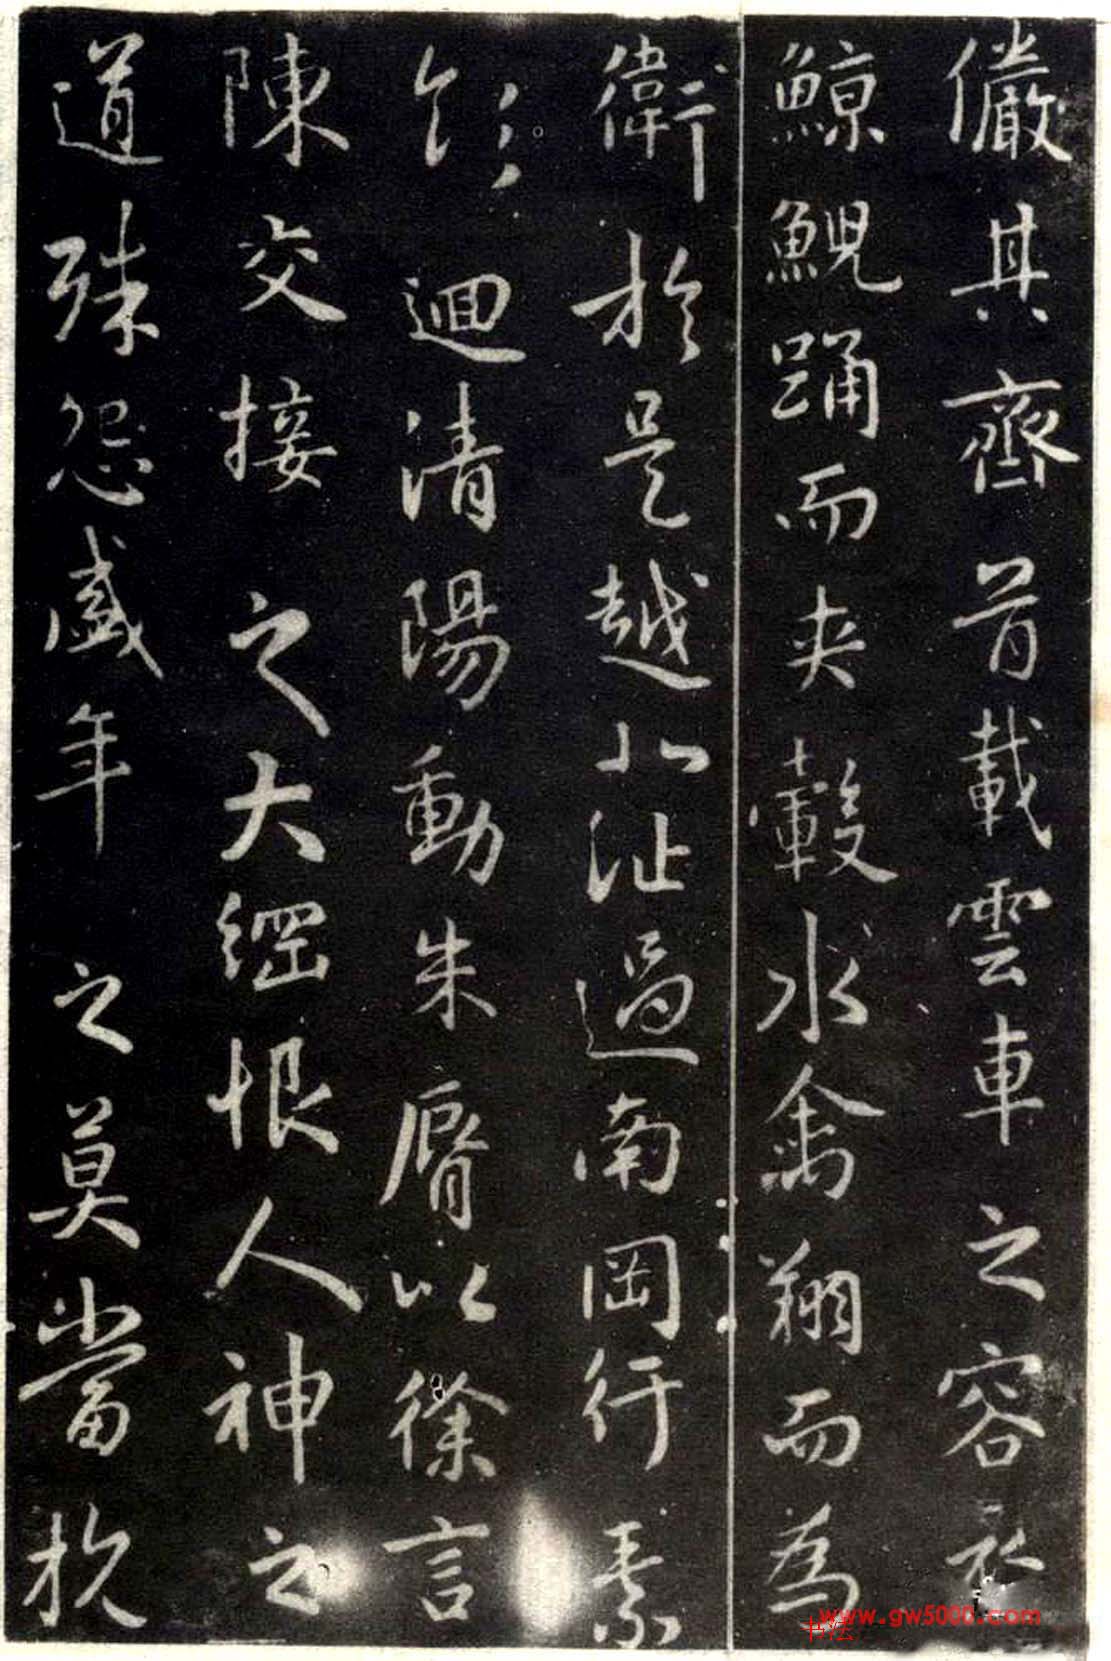 儼其齊首載雲車之容
鯨鯢踊而夾轂水禽翔而為
衛於是越北沚過南岡紆素
領迴清陽動朱脣以徐言
陳交接之大綱恨人神之
道殊怨盛年之莫當抗
www.gw5000.com
书法